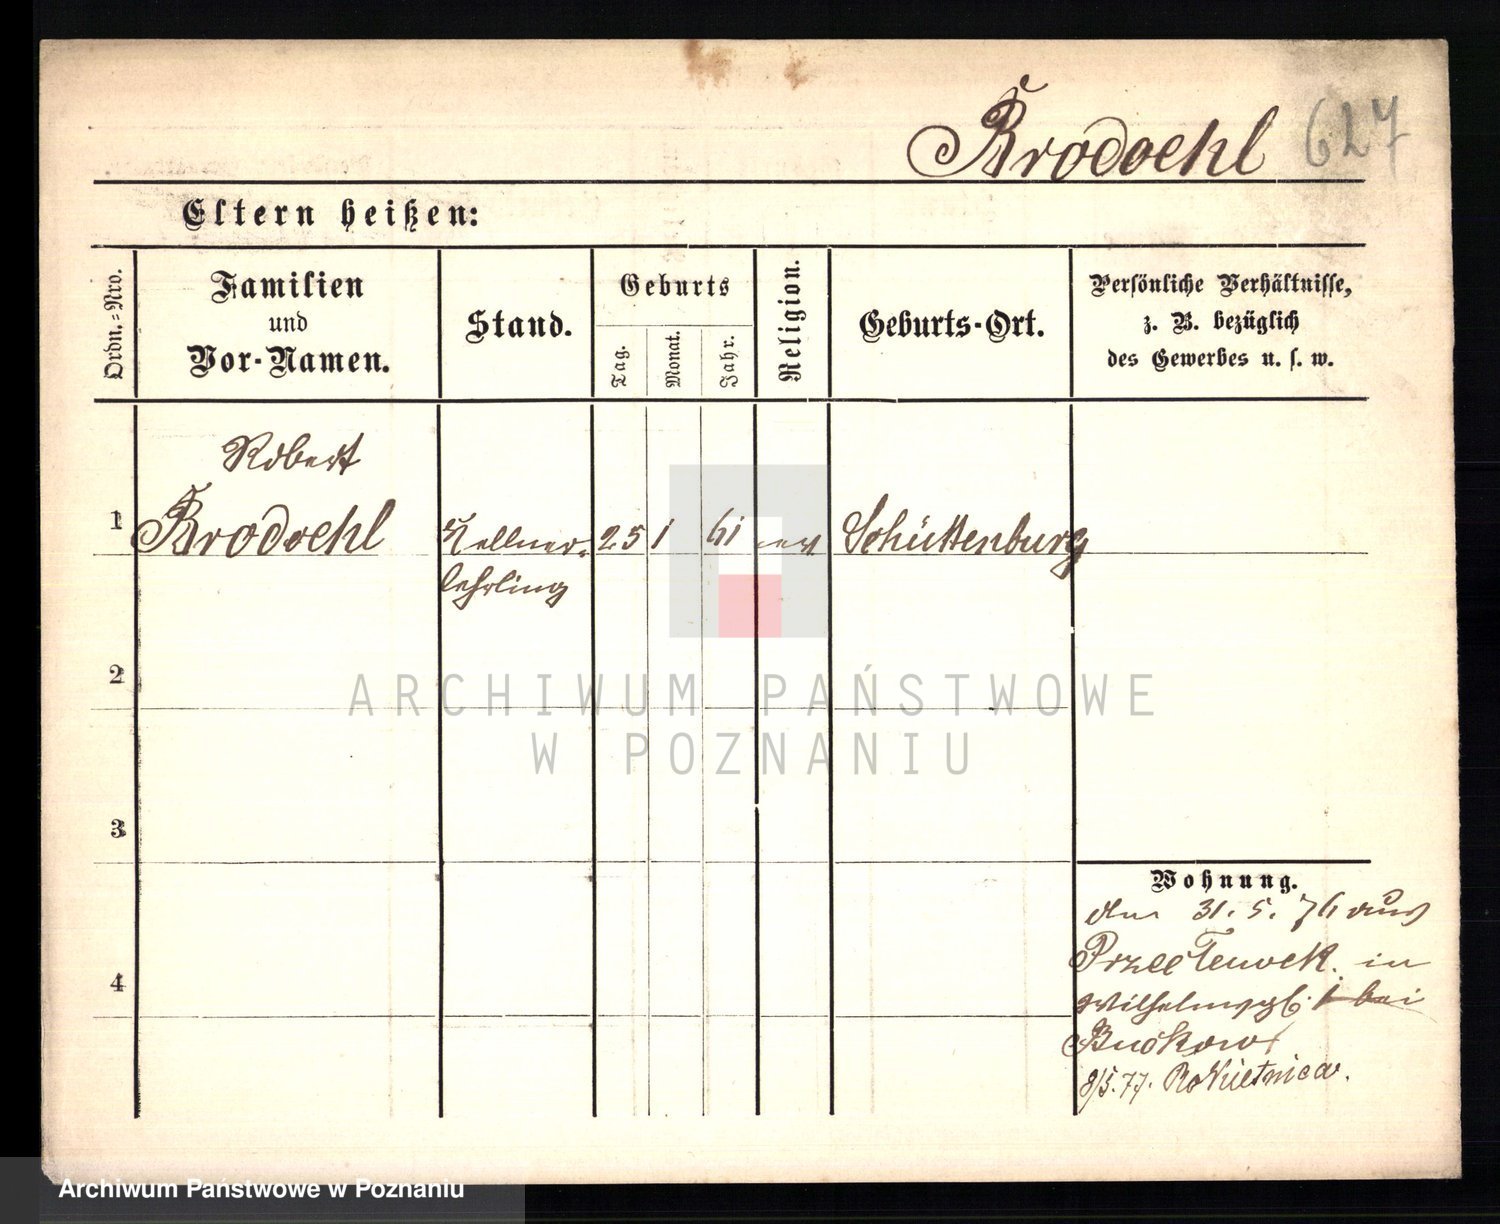 Brodoehl 627
Eltern heißen:
Ordn.-Nro.
Familien
und
Vor-Namen.
Stand.
Geburts
Tag.
Monat.
Jahr.
Religion.
Geburts-Ort.
Persönliche Verhältnisse,
z. B. bezüglich
des Gewerbes u. s. w.
Robert
1 Brodoehl Kellner- 25 1 61 ev Schüttenburg
lehrling
2
3
4
Wohnung.
den 31. 5. 76 aus
in
bei
Buckow
8/5. 77. Rokietnica.
ARCHIWUM PAŃSTWOWE
W POZNANIU
Archiwum Państwowe w Poznaniu